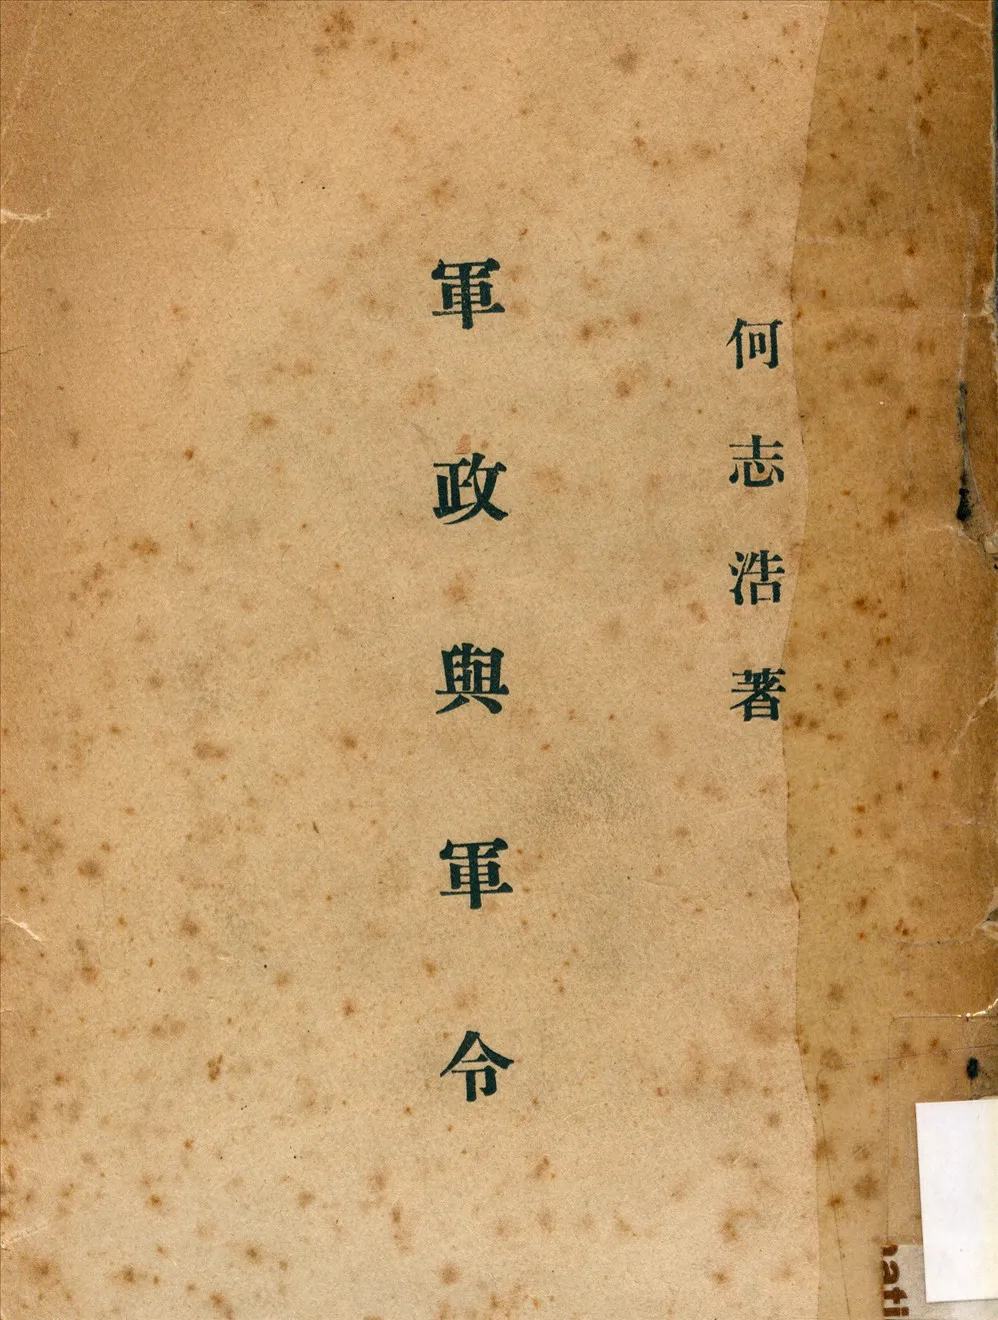 何志浩著
軍政與軍令
nati